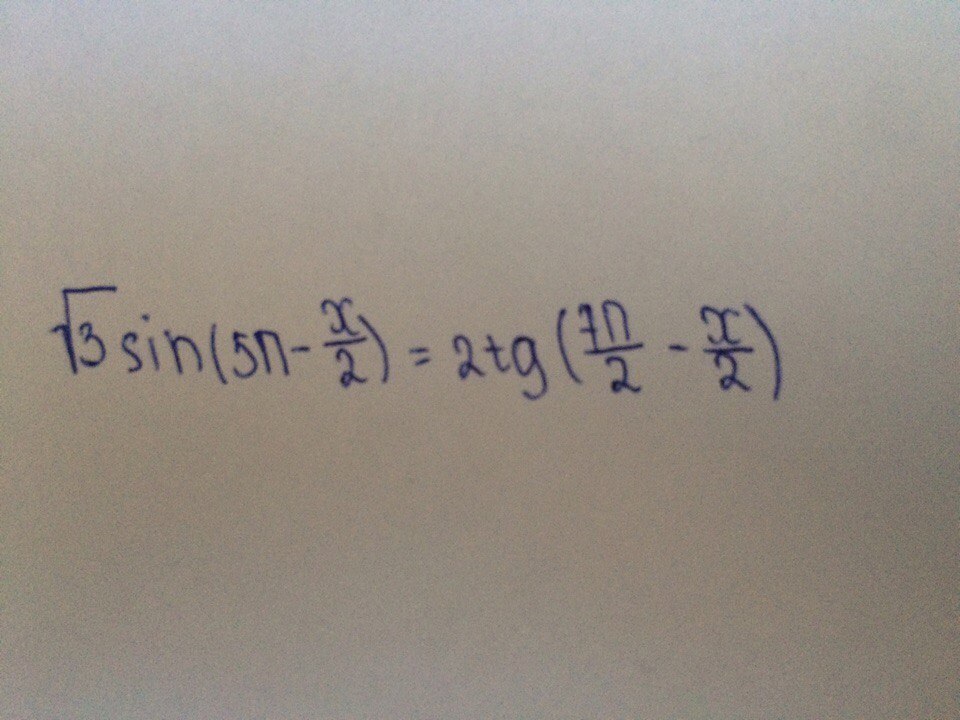 √3 sin(5π - x/2) = 2tg(7π/2 - x/2)